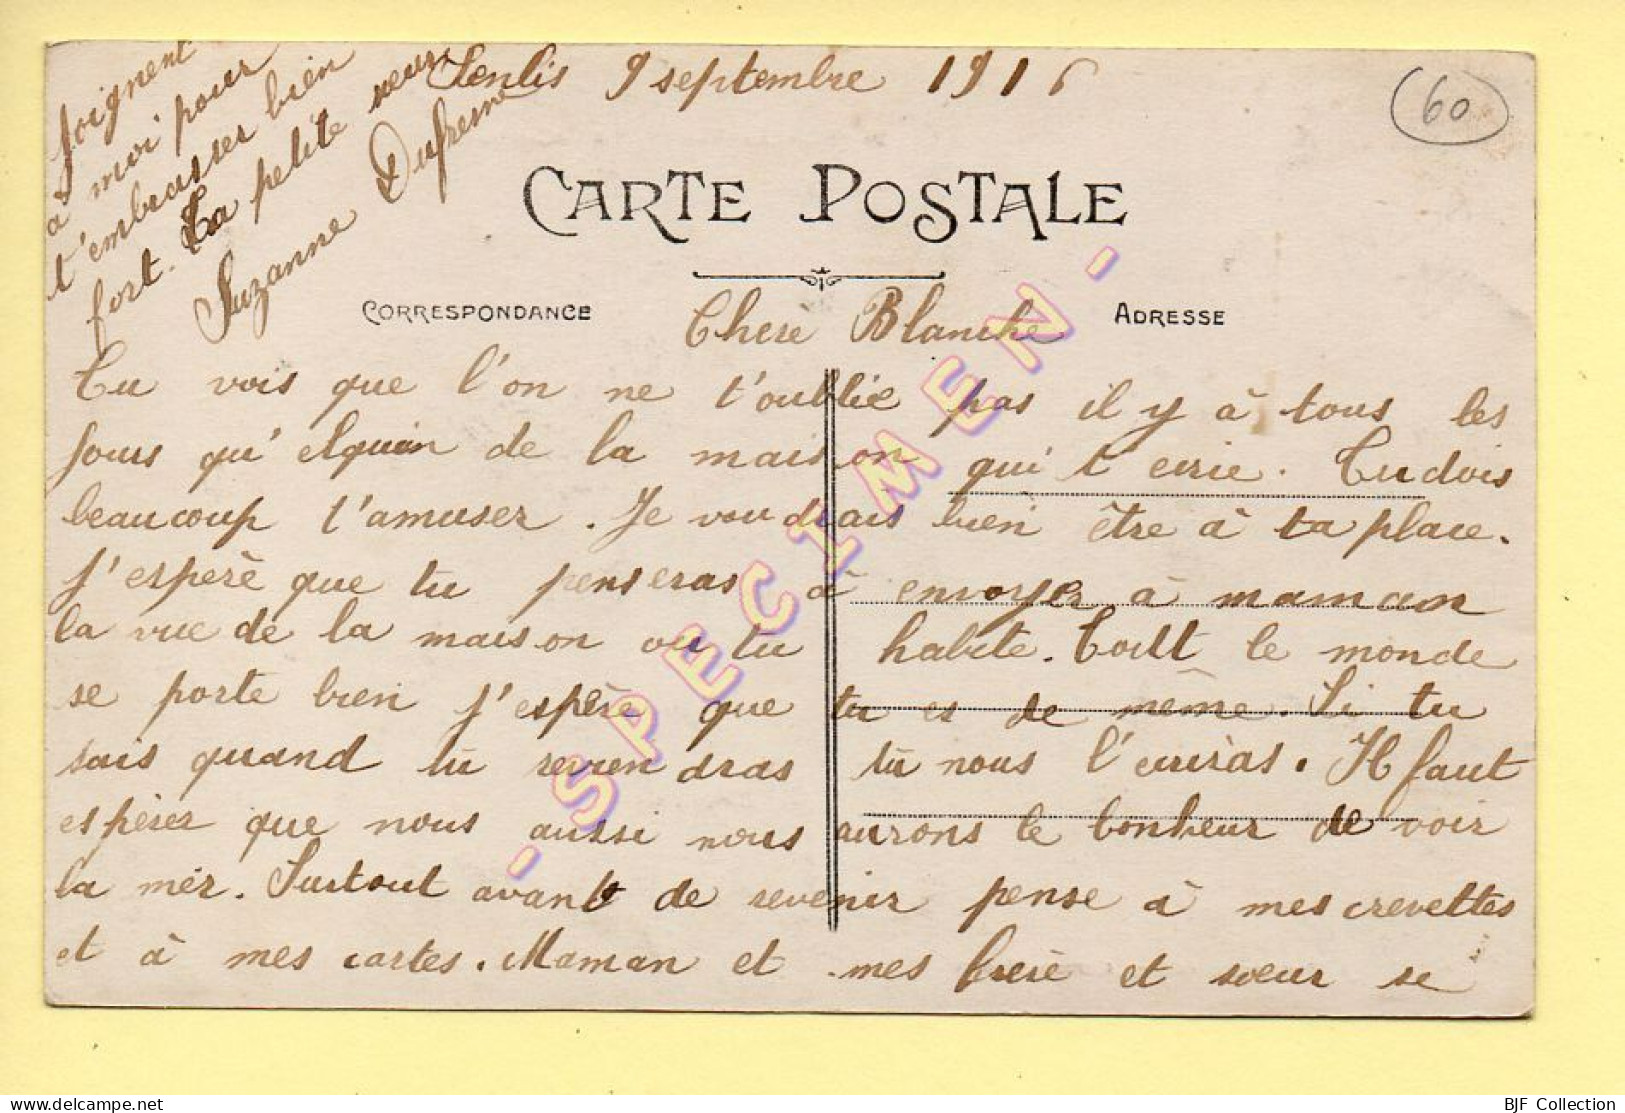 Senlis 9 septembre 1916
60
CARTE POSTALE
CORRESPONDANCE
ADRESSE
Chere Blanche
Tu vois que l'on ne t'oublie pas il y à tous les
jours qu'elquin de la maison qui t'ecrie. Tu dois
beaucoup t'amuser. Je voudrais bien être à ta place.
J'espere que tu penseras à envoyer à maman
la vue de la maison ou tu habite. Toutt le monde
se porte bien j'espère que tu es de même. Si tu
sais quand tu reviendras tu nous l'ecriras. Il faut
espérer que nous aussi nous aurons le bonheur de voir
la mer. Surtout avant de revenir pense à mes crevettes
et à mes cartes. Maman et mes frere et soeur se
joignent
à moi pour
t'embrasser bien
fort. Ta petite seur
Suzanne Dufresne
- SPECIMEN -
BJF Collection